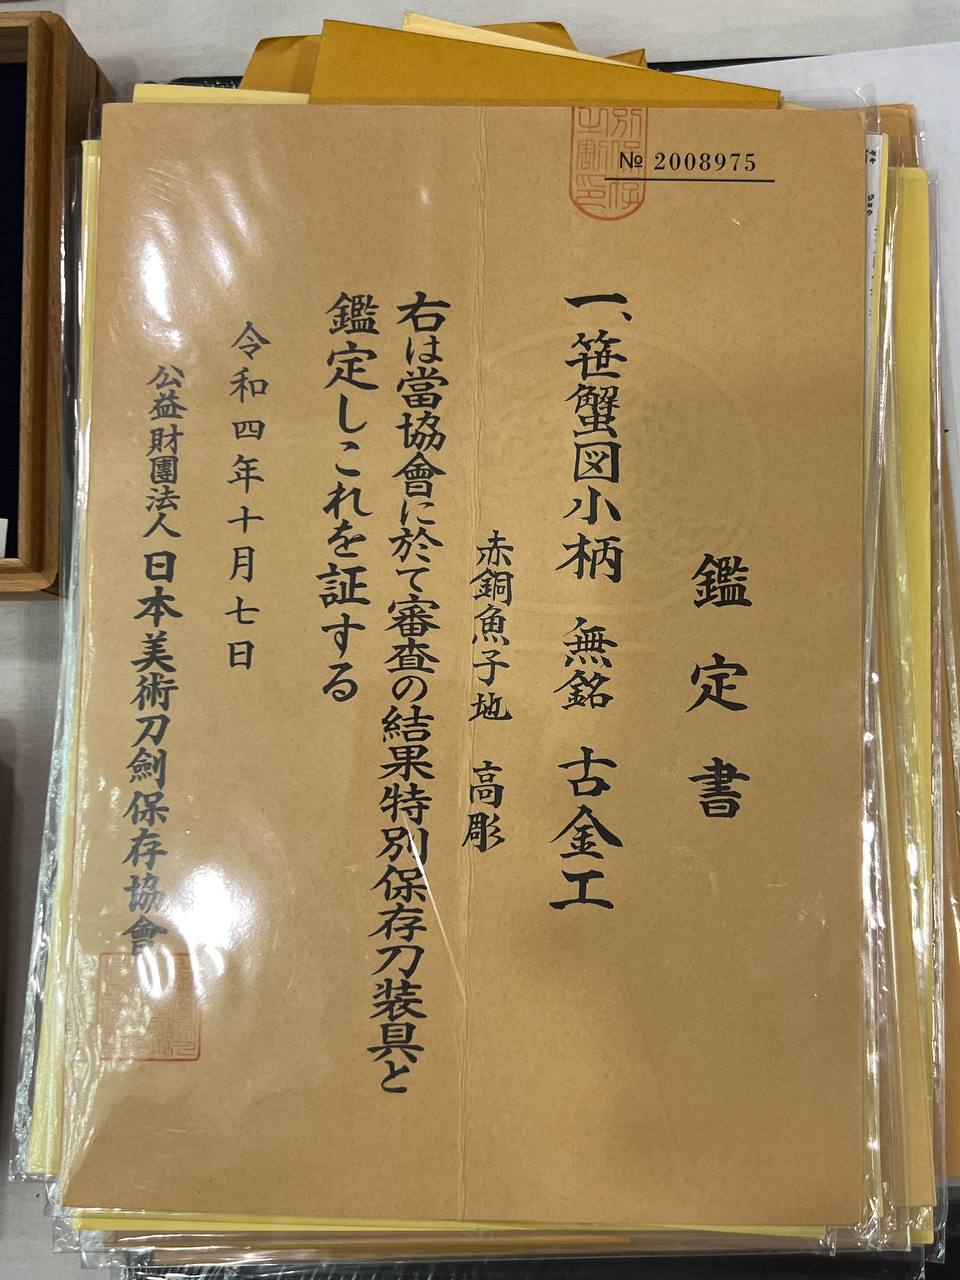 № 2008975
鑑定書
一、笹蟹図小柄 無銘 古金工
赤銅魚子地 高彫
右は當協會に於て審査の結果特別保存刀装具と
鑑定しこれを証する
令和四年十月七日
公益財團法人 日本美術刀劍保存協會